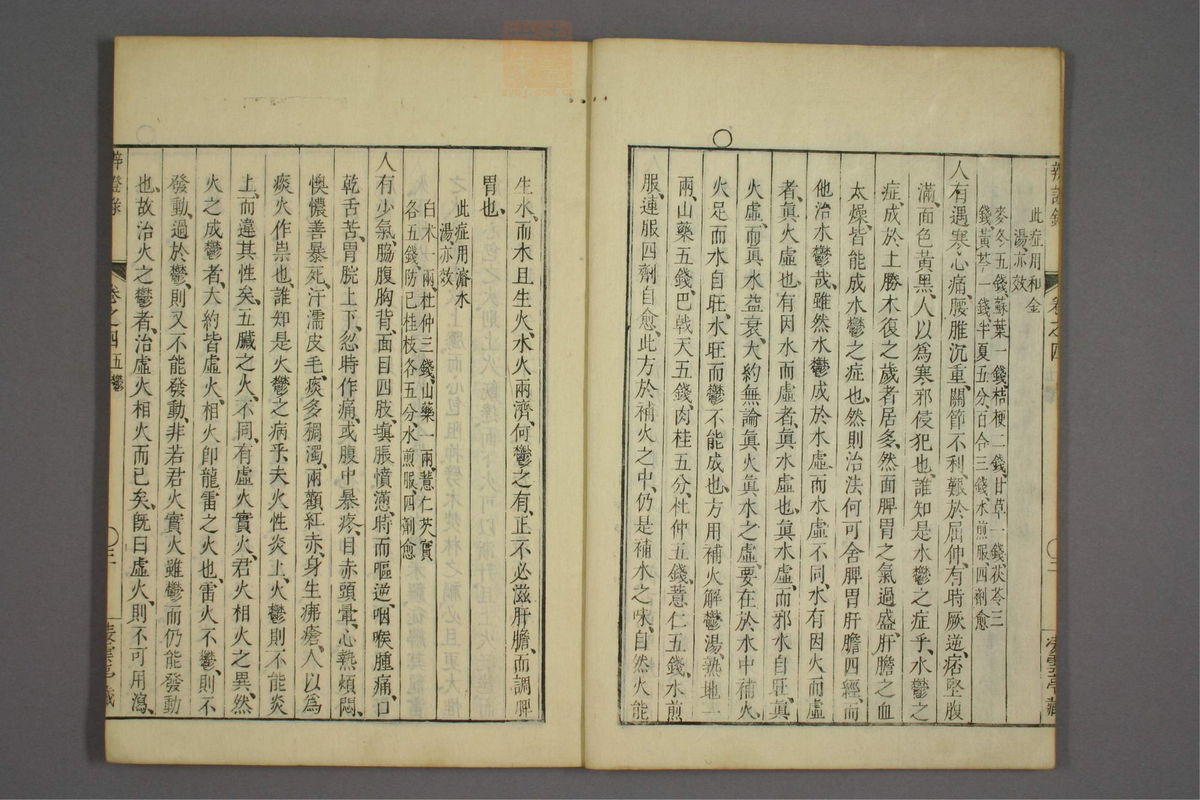 此症用和金
湯亦效
麥冬五錢蘇葉一錢桔梗二錢甘草一錢茯苓三
錢黃芩一錢半夏五分百合三錢水煎服四劑愈
人有遇寒心痛腰脽沉重關節不利艱於屈伸有時厥逆痞堅腹
滿面色黃黑人以爲寒邪侵犯也誰知是水鬱之症乎水鬱之
症成於土勝木復之歲者居多然而脾胃之氣過盛肝膽之血
太燥皆能成水鬱之症也然則治法何可舍脾胃肝膽四經而
他治水鬱哉雖然水鬱成於水虛而水虛不同水有因火而虛
者眞火虛也有因水而虛者眞水虛也眞水虛而邪水自旺眞
火虛而眞水益衰大約無論眞火眞水之虛要在於水中補火
火足而水自旺水旺而鬱不能成也方用補火解鬱湯熟地一
兩山藥五錢巴戟天五錢肉桂五分杜仲五錢薏仁五錢水煎
服連服四劑自愈此方於補火之中仍是補水之味自然火能
生水而水且生火水火兩濟何鬱之有正不必滋肝膽而調脾
胃也
此症用濬水
湯亦效
白术一兩杜仲三錢山藥一兩薏仁芡實
各五錢防己桂枝各五分水煎服四劑愈
人有少氣脇腹胸背面目四肢塡脹憤懣時而嘔逆咽喉腫痛口
乾舌苦胃脘上下忽時作痛或腹中暴疼目赤頭暈心熱煩悶
懊憹善暴死汗濡皮毛痰多稠濁兩顴紅赤身生痱瘡人以爲
痰火作祟也誰知是火鬱之病乎夫火性炎上火鬱則不能炎
上而違其性矣五臟之火不同有虛火實火君火相火之異然
火之成鬱者大約皆虛火相火卽龍雷之火也雷火不鬱則不
發動過於鬱則又不能發動非若君火實火雖鬱而仍能發動
也故治火之鬱者治虛火相火而已矣旣曰虛火則不可用瀉
卷之四五鬱